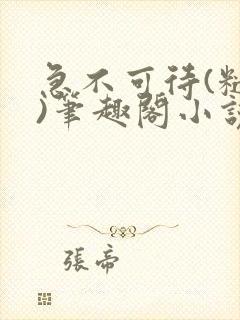 急不可待(
)筆趣閣小說
張帝